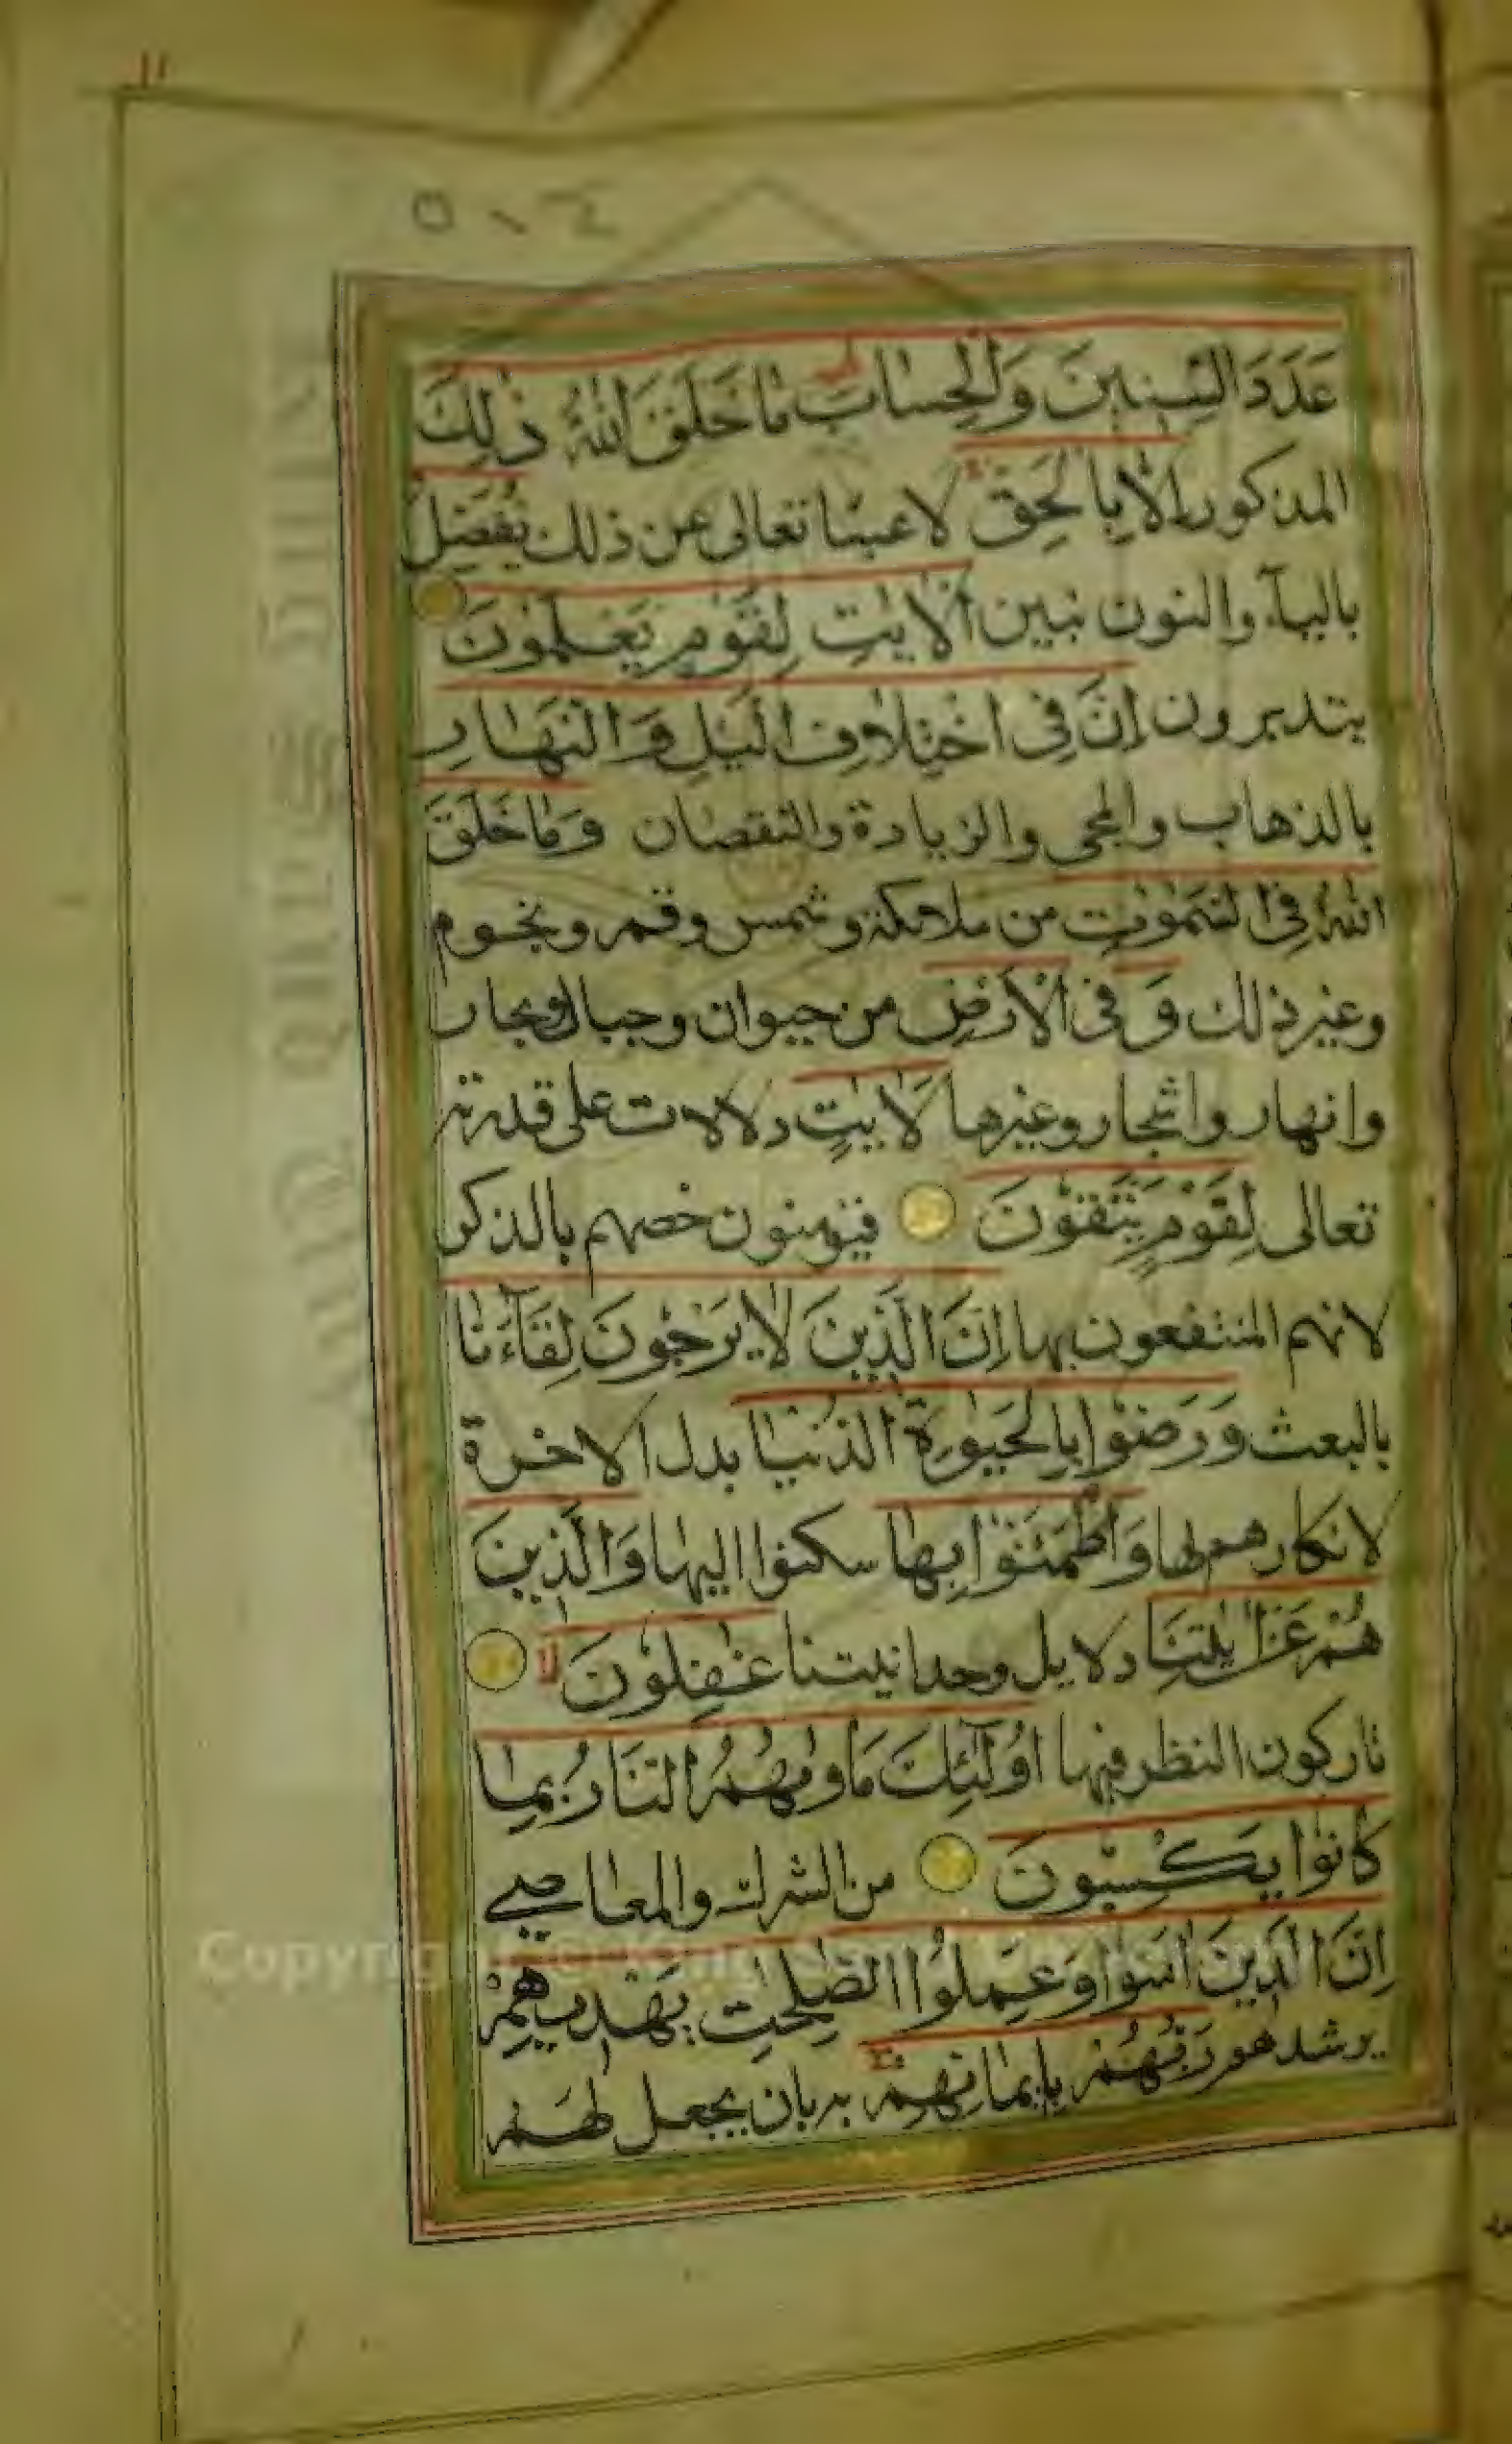 ١١
عَدَدَ السِّنِينَ وَالْحِسَابَ مَا خَلَقَ اللّٰهُ ذٰلِكَ
المذكور اِلَّا بِالْحَقِّ لا عبثا تعالى عن ذلك يُفَصِّلُ
بالياۤء والنون نبين الْاٰيٰتِ لِقَوْمٍ يَعْلَمُونَ
يتدبرون اِنَّ فِى اخْتِلَافِ الَّيْلِ وَالنَّهَارِ
بالذهاب والمجى والزيادة والنقصان وَمَا خَلَقَ
اللّٰهُ فِى السَّمٰوٰتِ من ملائكة وشمس وقمر ونجوم
وغير ذلك وَ فى الْاَرْضِ من حيوان وجبال وبحار
وانهار واشجار وغيرها لَاٰيٰتٍ دلالات على قدرته
تعالى لِقَوْمٍ يَتَّقُونَ فيؤمنون خصهم بالذكر
لانهم المنتفعون بها اِنَّ الَّذِينَ لَا يَرْجُونَ لِقَاۤءَنَا
بالبعث وَرَضُوا بِالْحَيٰوةِ الدُّنْيَا بدل الاخرة
لانكارهم لها وَاطْمَئَنُّوا بِهَا سكنوا اليها وَالَّذِينَ
هُمْ عَنْ اٰيٰتِنَا دلايل وحدانيتنا غٰفِلُونَ لا
تاركون النظر فيها اُولٰۤئِكَ مَاْوٰيهُمُ النَّارُ بِمَا
كَانُوا يَكْسِبُونَ من الشرك والمعاصي
اِنَّ الَّذِينَ اٰمَنُوا وَعَمِلُوا الصّٰلِحٰتِ يَهْدِيهِمْ
يرشدهم رَبُّهُمْ بِاِيمَانِهِمْ به بان يجعل لهم